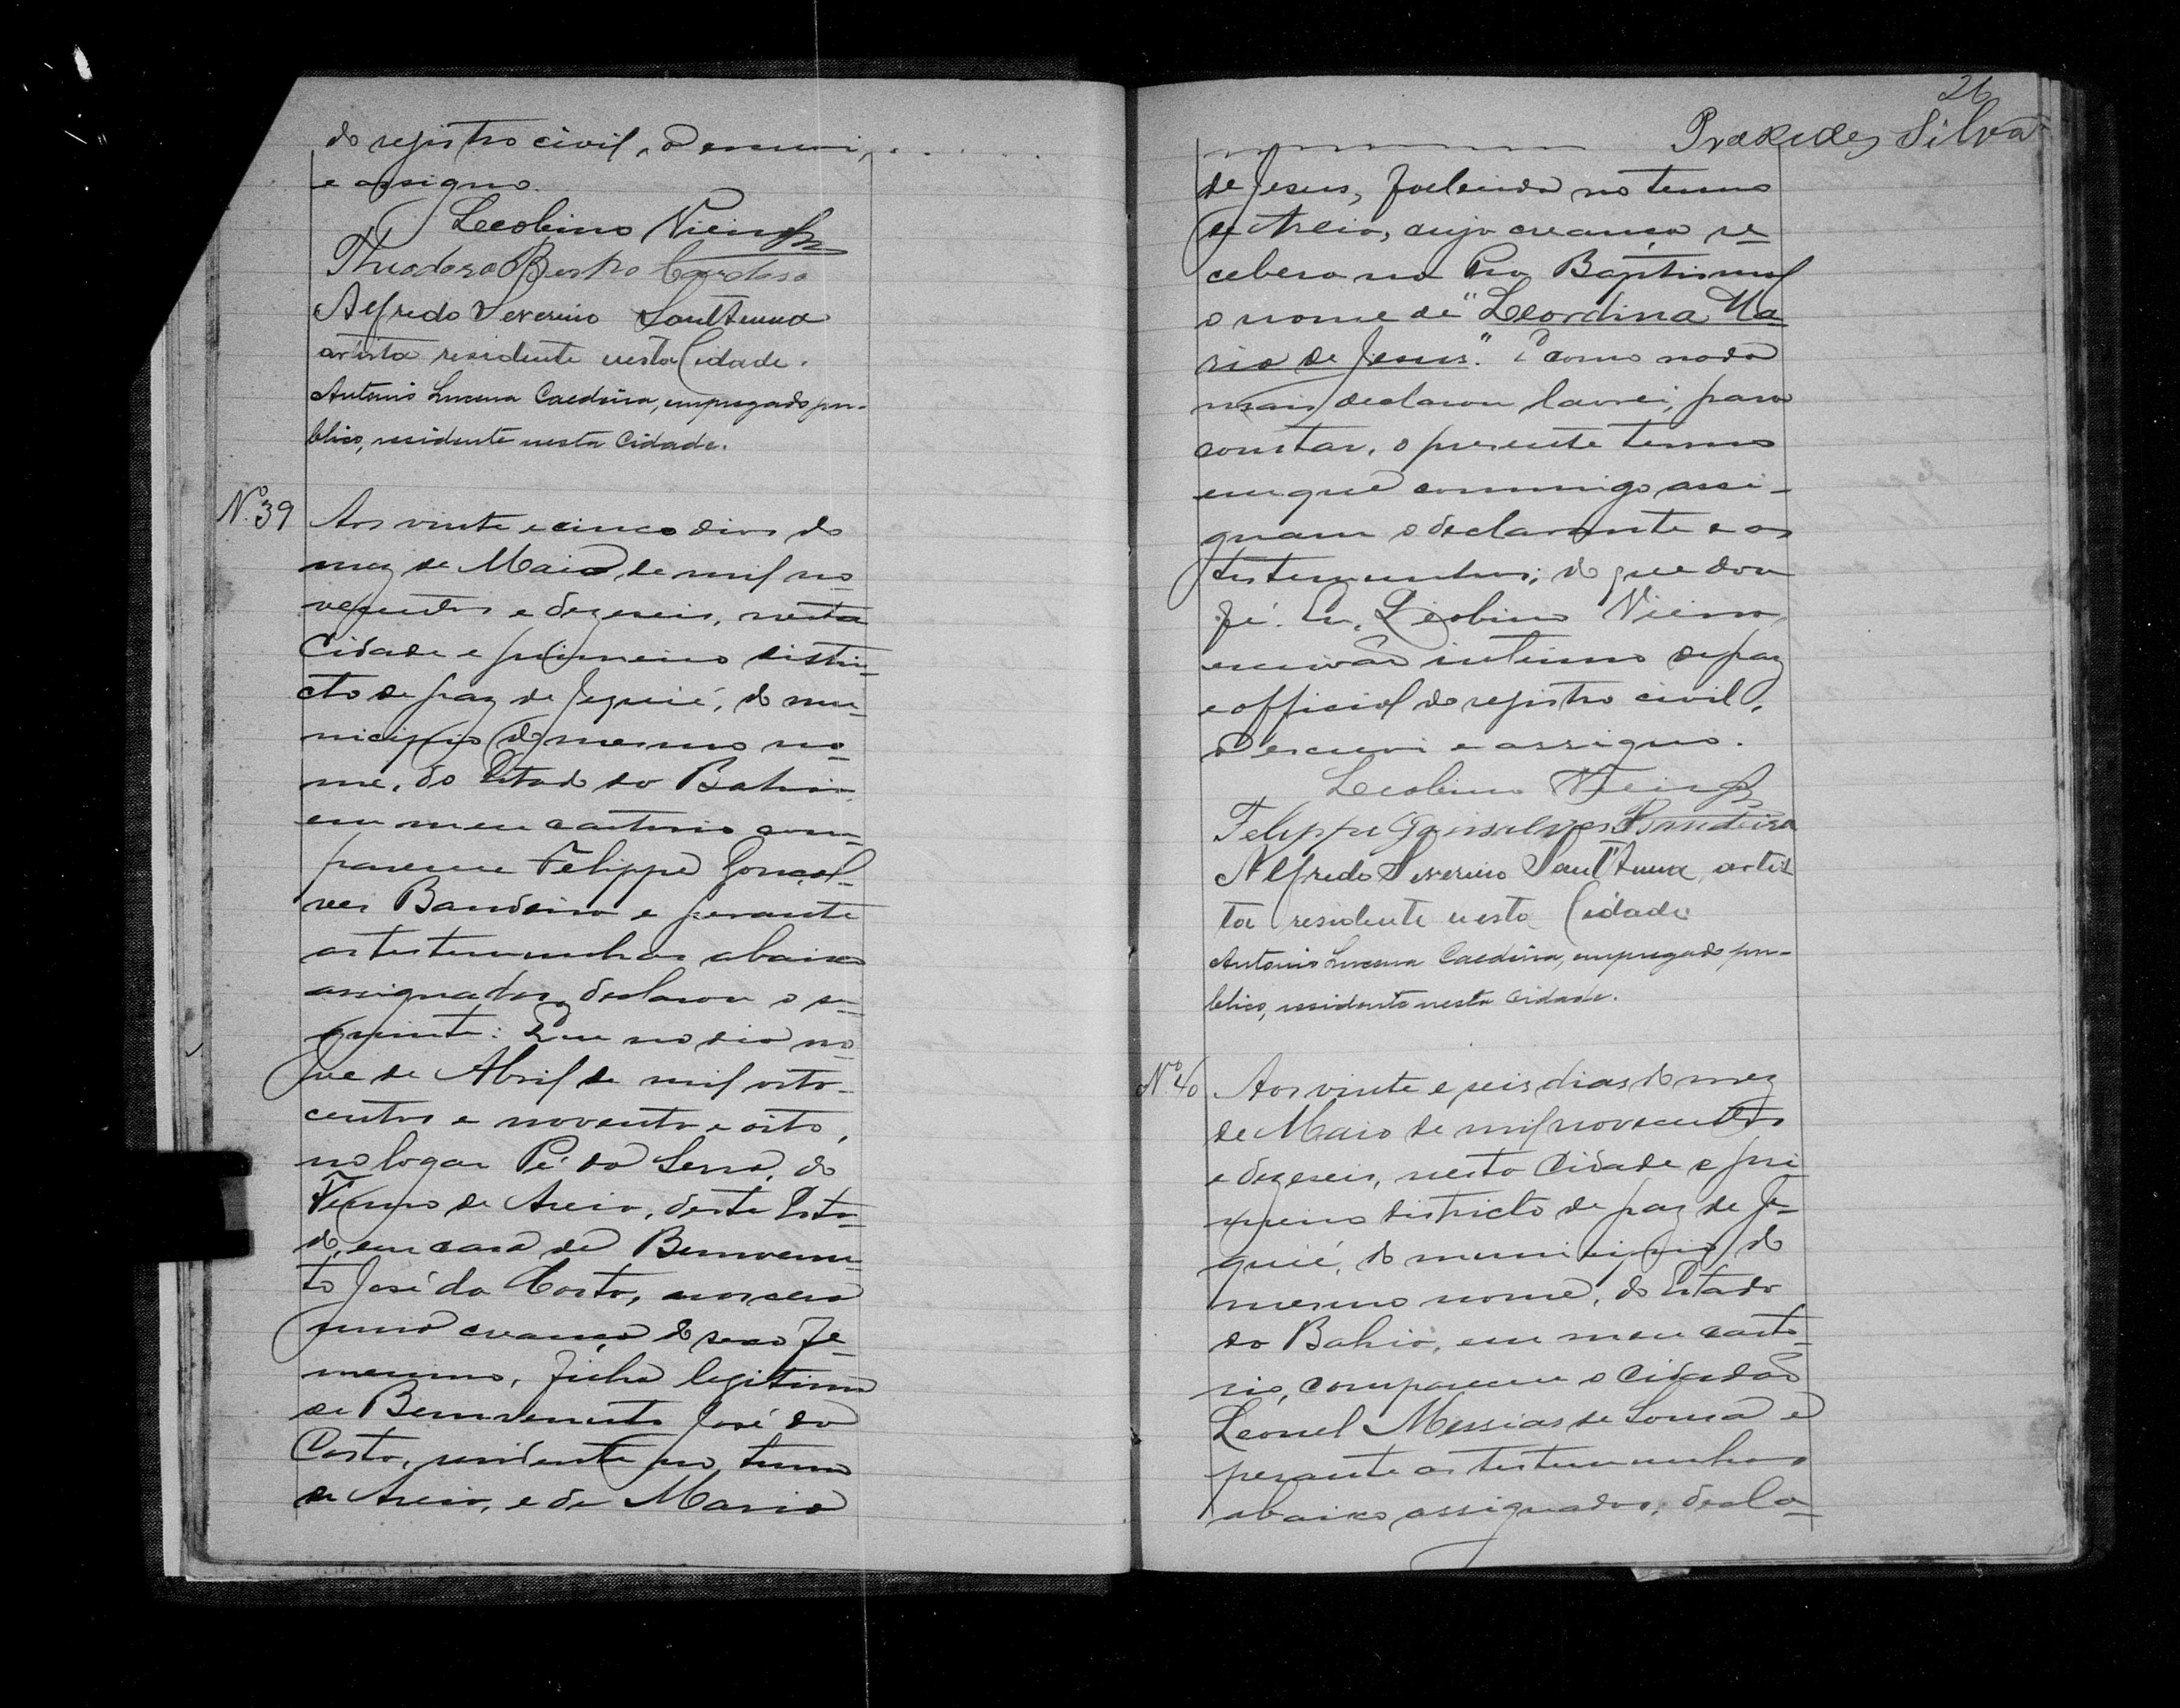 do registro civil, o escrevi,
e assigno.
Leobino Vieira
Theodoro Bertho Cardoso
Alfredo Severino Sant'Anna
artista residente nesta Cidade.
Antonio Lucena Caldeira, empregado pu-
blico, residente nesta Cidade.
Nº 39
Aos vinte e cinco dias do
mez de Maio de mil no-
vecentos e dezeseis, nesta
Cidade e primeiro distri-
cto de paz de Jequié, do mu-
nicipio do mesmo no-
me, do Estado da Bahia,
em meu cartorio com-
pareceu Felippe Gonçal-
ves Bandeira e perante
as testemunhas abaixo
assignadas, declarou o se-
guinte: Que no dia no-
ve de Abril de mil oito-
centos e noventa e oito,
no logar Pé da Serra, do
Termo de Areia, deste Esta-
do, em casa de Bemvenu-
to José da Costa, nascera
uma creança do sexo fe-
menino, filha legitima
de Bemvenuto José da
Costa, residente no termo
de Areia, e de Maria
26
Praxedes Silva
de Jesus, fallecida no termo
de Areia, cuja creança re-
cebera na Pia Baptismal
o nome de "Leordina Ma-
ria de Jesus." E como nada
mais declarou lavrei, para
constar, o presente termo
em que commigo assi-
gnam o declarante e as
testemunhas; do que dou
fé. Eu, Leobino Vieira,
escrivão interino de paz
e official do registro civil,
o escrevi e assigno.
Leobino Vieira
Felippe Gonsalves Bandeira
Alfredo Severino Sant'Anna, artis
ta residente nesta Cidade
Antonio Lucena Caldeira, empregado pu-
blico, residente nesta Cidade.
Nº 40
Aos vinte e seis dias do mez
de Maio de mil novecentos
e dezeseis, nesta Cidade e pri
meiro districto de paz de Je-
quié, do municipio do
mesmo nome, do Estado
da Bahia, em meu carto-
rio, compareceu o Cidadão
Leonel Messias de Souza e
perante as testemunhas
abaixo assignadas, decla-